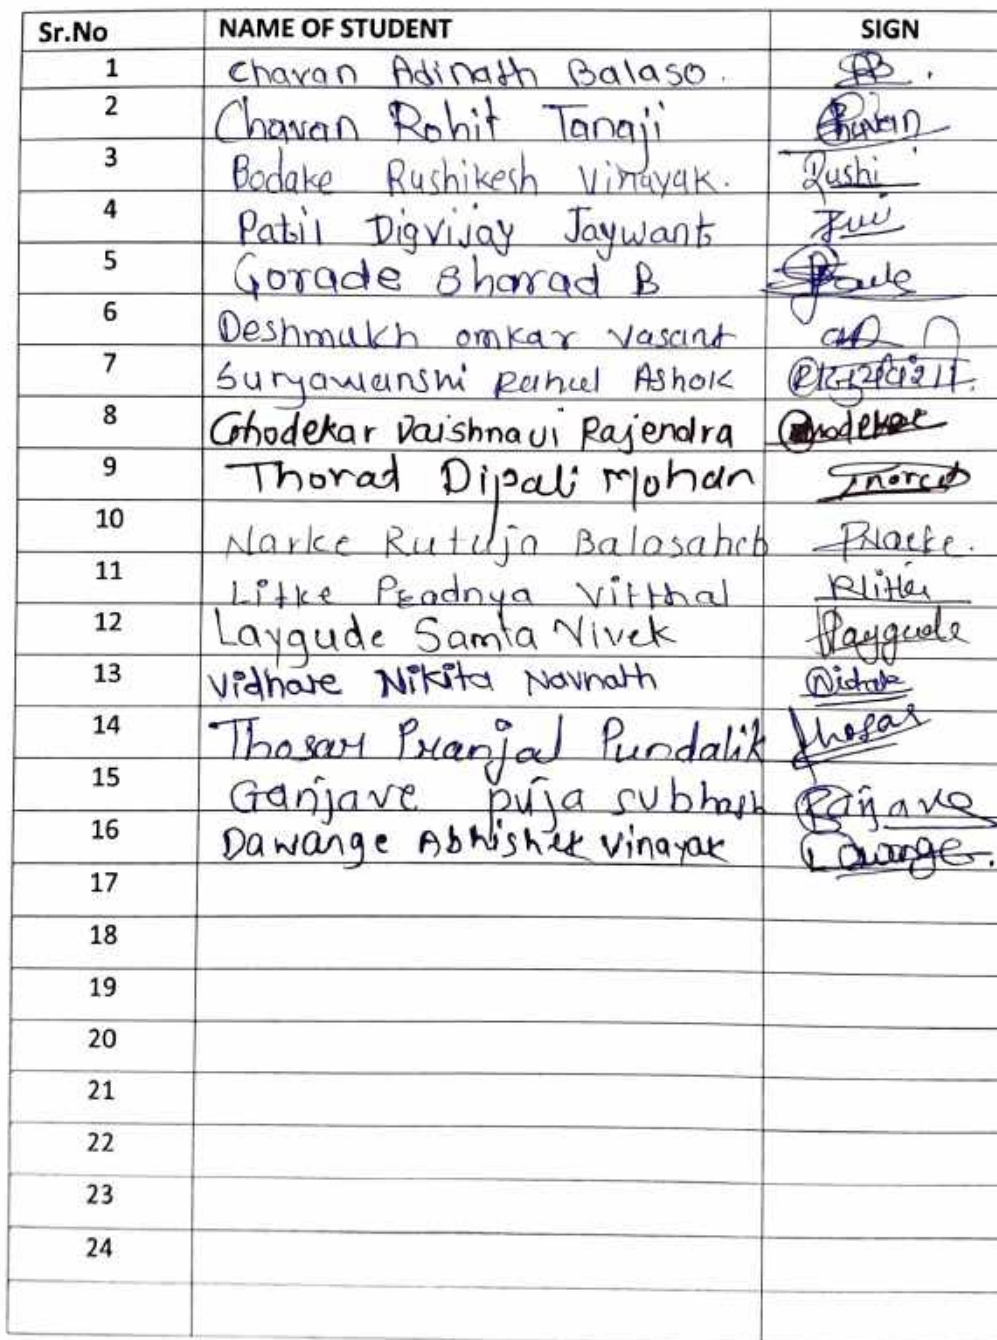 Sr.No NAME OF STUDENT SIGN
1 Chavan Adinath Balaso. AB.
2 Chavan Rohit Tanaji Chavan
3 Bodake Rushikesh Vinayak. Rushi
4 Patil Digvijay Jaywant
5 Gorade Sharad B
6 Deshmukh omkar vasant
7 Suryawanshi Rahul Ashok
8 Ghodekar Vaishnavi Rajendra Ghodekar
9 Thorat Dipali Mohan Thorat
10 Narke Rutuja Balasaheb RNarke.
11 Litke Pradnya Vitthal PLitke
12 Laygude Samta Vivek Laygude
13 Vidhate Nikita Navnath
14 Thosar Pranjal Pundalik Thosar
15 Ganjave puja subhash Ganjave
16 Dawange Abhishek Vinayak Dawange.
17
18
19
20
21
22
23
24